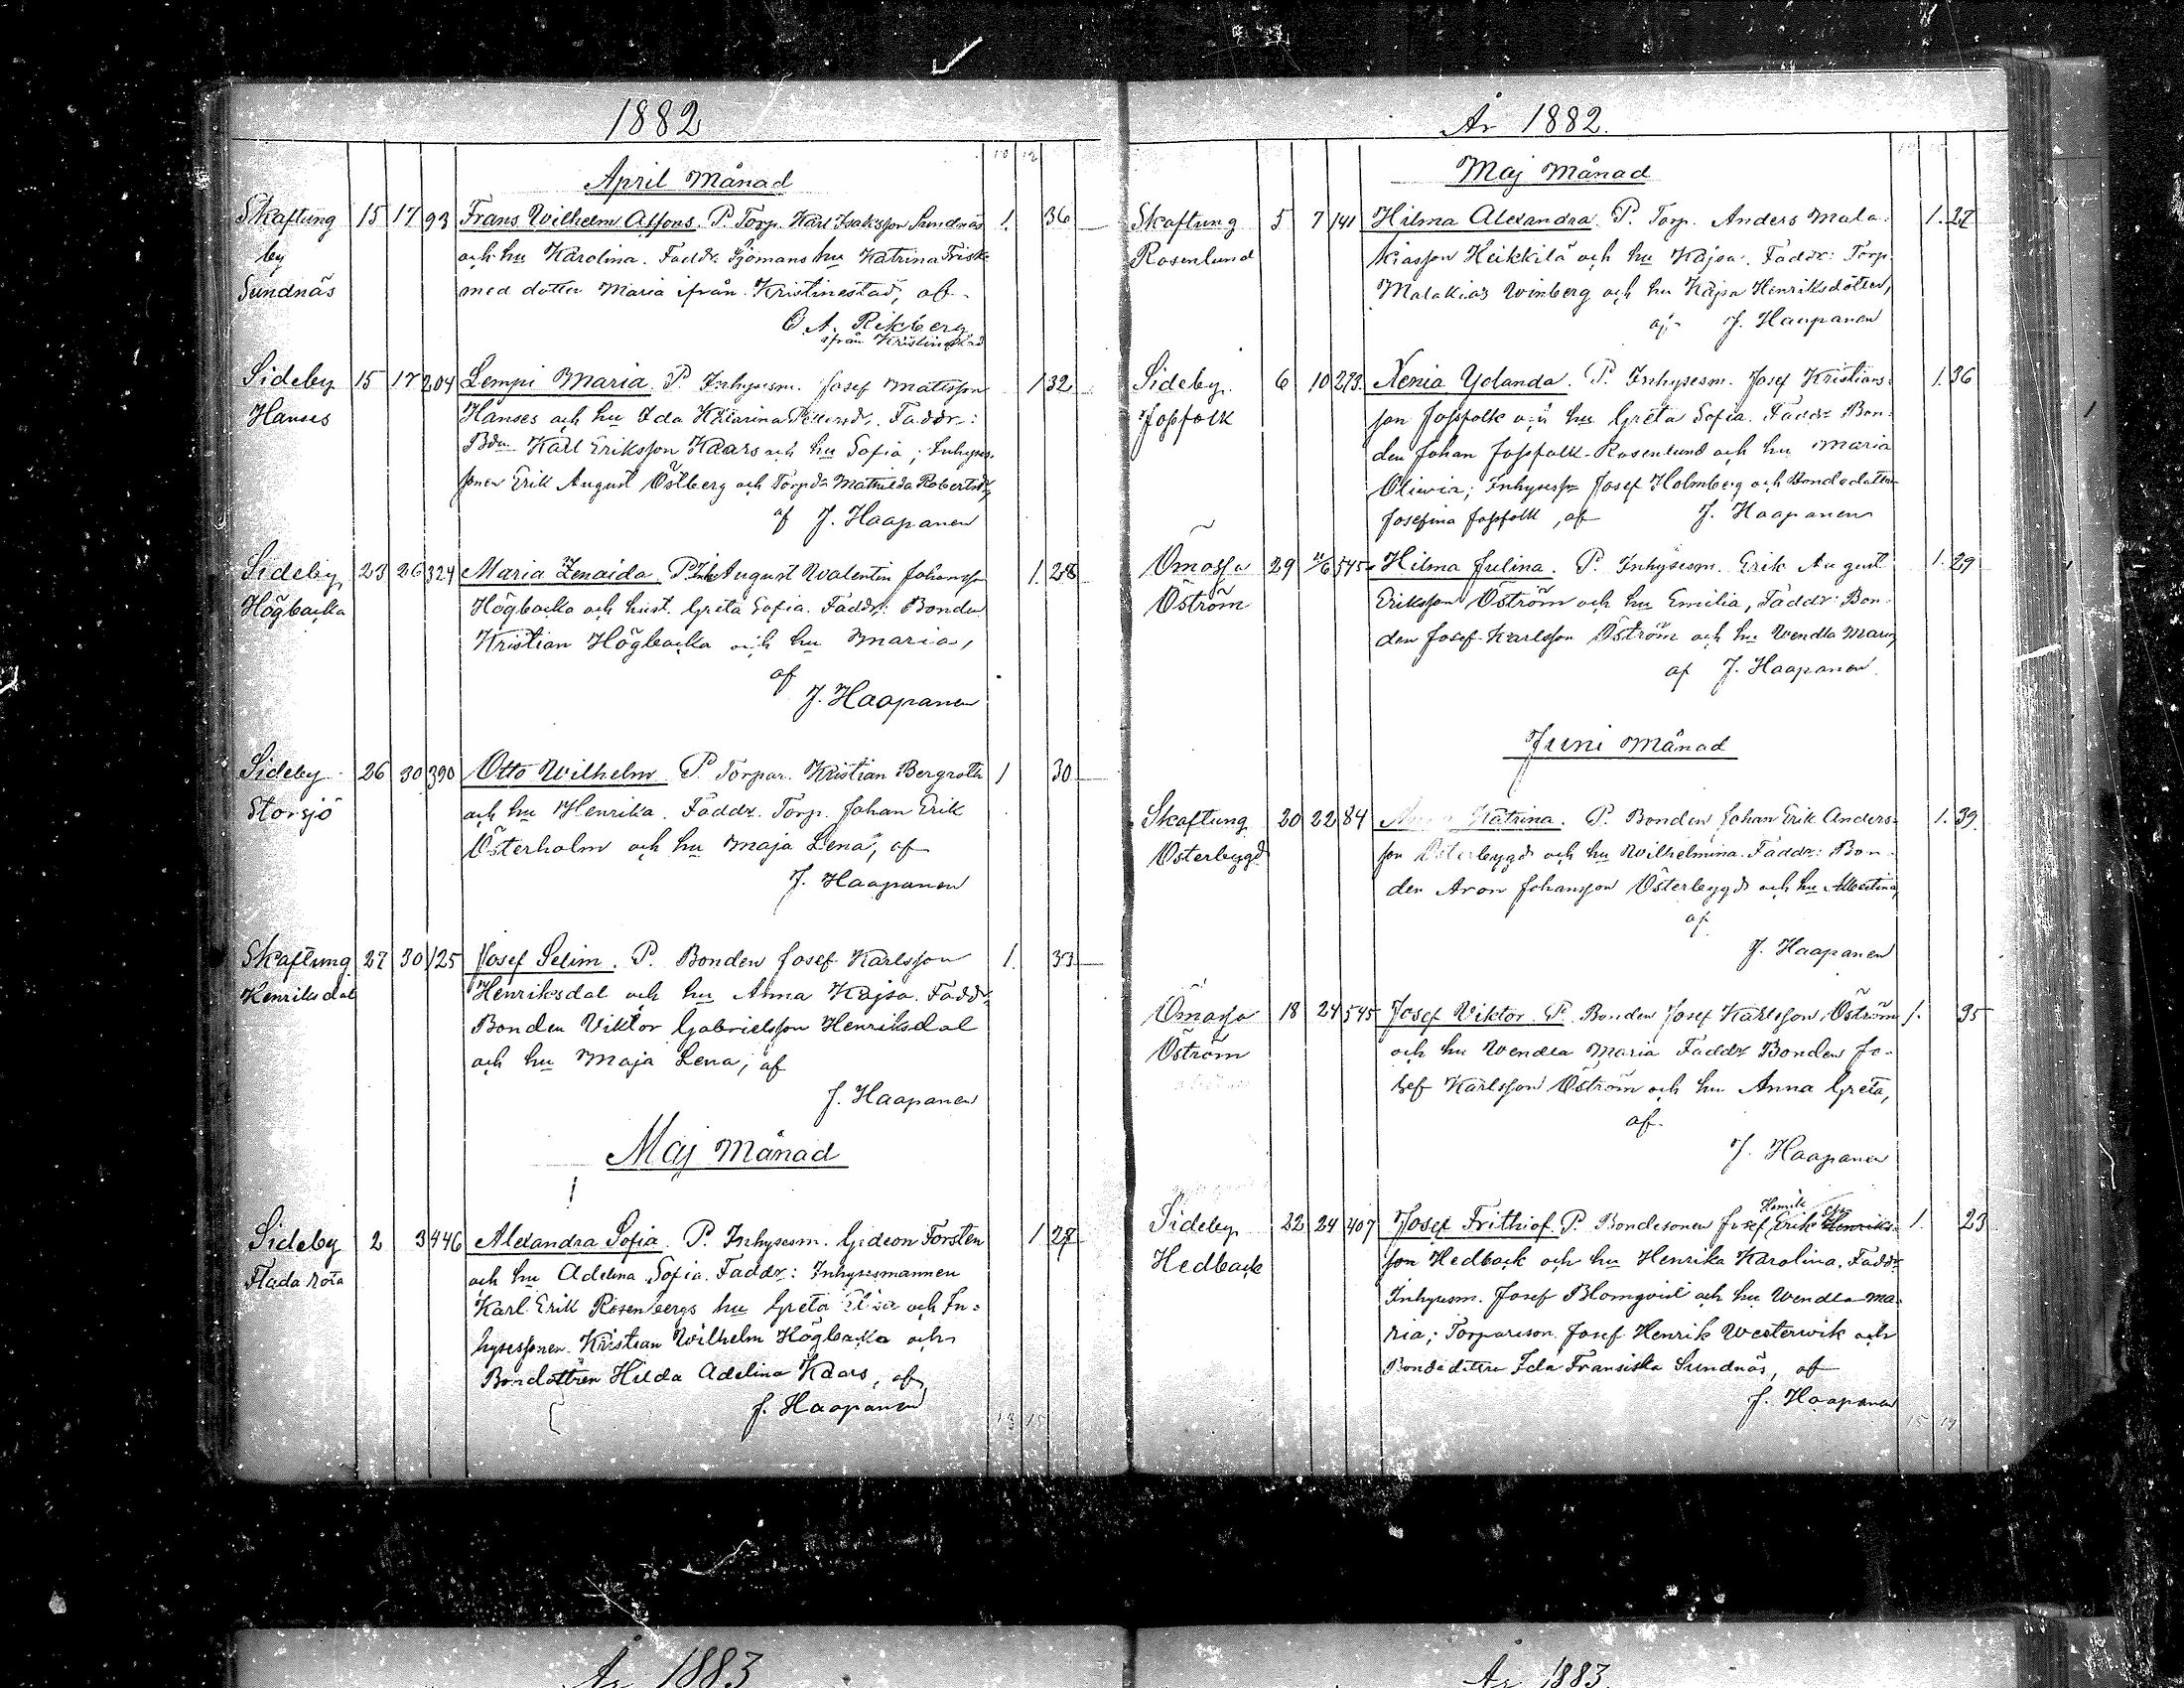 1882
April Månad
Skaftung 15 17 93 Frans Wilhelm Alfons. P. Torp. Karl Isaksson Sundnäs 1. 36
by och hu Karolina. Faddr. Sjömans hu Katrina Frisk
Sundnäs med dotter Maria ifrån Kristinestad, af
O. A. Rikberg
ifrån Kristinestad
Sideby 15 17 204 Lempi Maria. P. Inhysesm. Josef Matsson 1 32
Hanses Hanses och hu Ida Katarina Faddr.:
Bdn Karl Eriksson Kaars och hu Sofia; Inhyses-
sonen Erik August Östberg och Torpdr Mathilda Robertsdr
af J. Haapanen
Sideby 23 26 324 Maria Zenaida. P. Inh. August Walentin Johansson 1. 28
Högbacka Högbacka och hust. Greta Sofia. Faddr: Bonden
Kristian Högbacka och hu Maria,
af
J. Haapanen
Sideby 26 30 390 Otto Wilhelm. P. Torpar. Kristian Bergroth 1 30
Storsjö och hu Henrika. Faddr. Torp. Johan Erik
Österholm och hu Maja Lena, af
J. Haapanen
Skaftung 27 30 125 Josef Selim. P. Bonden Josef Karlsson 1. 33
Henriksdal Henriksdal och hu Anna Kajsa. Faddr
Bonden Viktor Gabrielsson Henriksdal
och hu Maja Lena, af
J. Haapanen
Maj Månad
Sideby 2 3 446 Alexandra Sofia. P. Inhysesm. Gideon Forstén 1 27
Flada rota och hu Adelina Sofia. Faddr: Inhysesmannen
Karl Erik Rosenbergs hu Greta och In-
hysessonen Kristian Wilhelm Högbacka och
Bondottren Hilda Adelina Kaars, af
J. Haapanen
År 1882.
Maj Månad
Skaftung 5 7 141 Hilma Alexandra. P. Torp. Anders Mala- 1. 27
Rosenlund kiasson Heikkilä och hu Kajsa. Faddr: Torp.
Malakias Winberg och hu Kajsa Henriksdotter,
af J. Haapanen
Sideby 6 10 273 Xenia Yolanda. P. Inhysesm. Josef Kristians- 1. 36
Jossfolk son Jossfolk och hu Greta Sofia. Faddr Bon-
den Johan Jossfolk-Rosenlund och hu Maria
Oliwia; Inhysess Josef Holmberg och Bondedotter
Josefina Jossfolk, af J. Haapanen
Ömossa 29 11/6 545 Hilma Julina. P. Inhysesm. Erik August 1. 29
Öström Eriksson Öström och hu Emilia, Faddr: Bon-
den Josef Karlsson Öström och hu Wendla Maria,
af J. Haapanen
Juni Månad
Skaftung 20 22 84 Katrina. P. Bonden Johan Erik Anders- 1. 39
Österbygd son Österbygd och hu Wilhelmina. Faddr: Bon-
den Aron Johansson Österbygd och hu Albertina,
af
J. Haapanen
Ömossa 18 24 545 Josef Viktor. P. Bonden Josef Karlsson Öström 1. 35
Öström och hu Wendla Maria Faddr Bonden Jo-
sef Karlsson Öström och hu Anna Greta,
af
J. Haapanen
Sideby 22 24 407 Josef Frithiof. P. Bondesonen Josef Erik Henriks- 1. 23
Henrik
Hedback son Hedback och hu Henrika Karolina. Faddr
Inhysesm. Josef Blomqvist och hu Wendla Ma-
ria; Torpareson. Josef Henrik Westerwik och
Bondedottren Ida Fransiska Sundnäs, af
J. Haapanen
År 1883
År 1883.